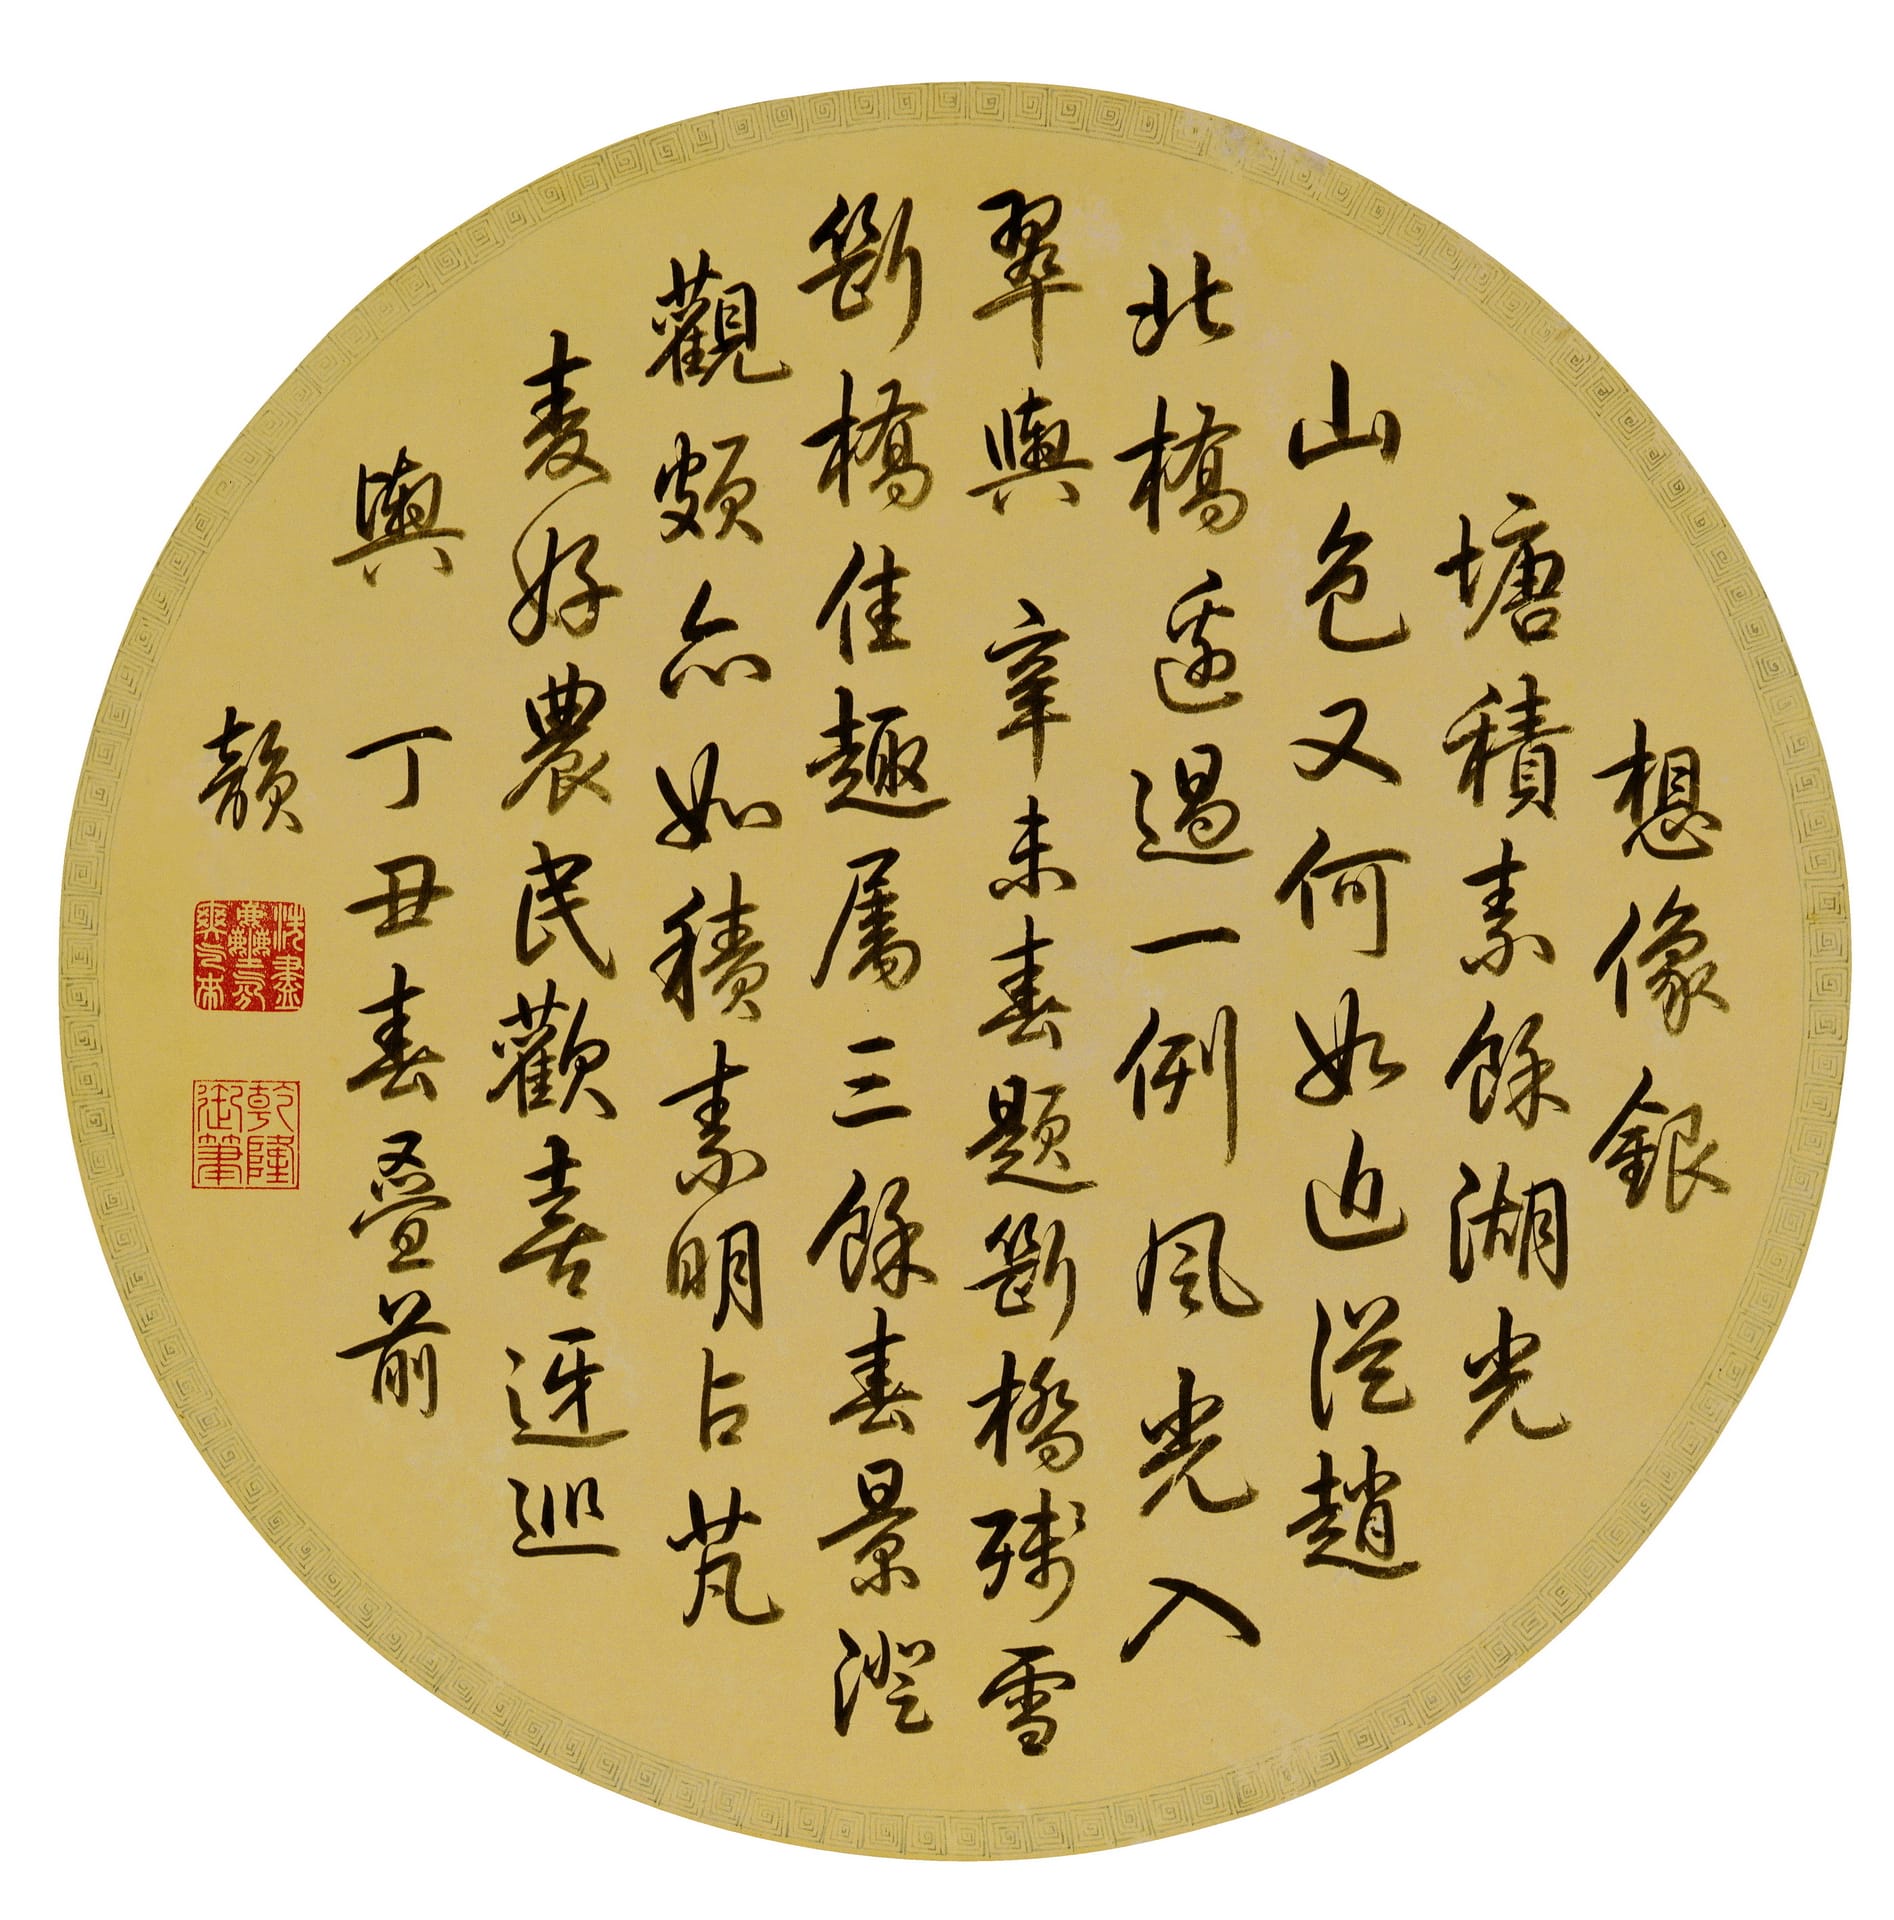 想像銀
塘積素餘湖光
山色又何如近從趙
北橋邊過一例風光入
翠輿 辛未春題斷橋殘雪
斷橋佳趣屬三餘春景澄
觀頗亦如積素明占芃
麥好農民歡喜迓巡
輿 丁丑春疊前
韻
乾隆
御筆